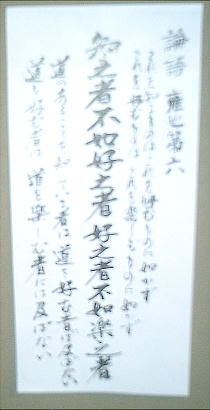 論語 雍也第六
これを知るものはこれを好むものに如かず
これを好むものはこれを楽しむものに如かず
知之者不如好之者 好之者不如楽之者
道のあることを知っている者は 道を好む者に及ばない
道を好む者は 道を楽しむ者には及ばない